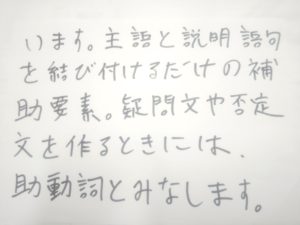 います。主語と説明語句
を結び付けるだけの補
助要素。疑問文や否定
文を作るときには、
助動詞とみなします。